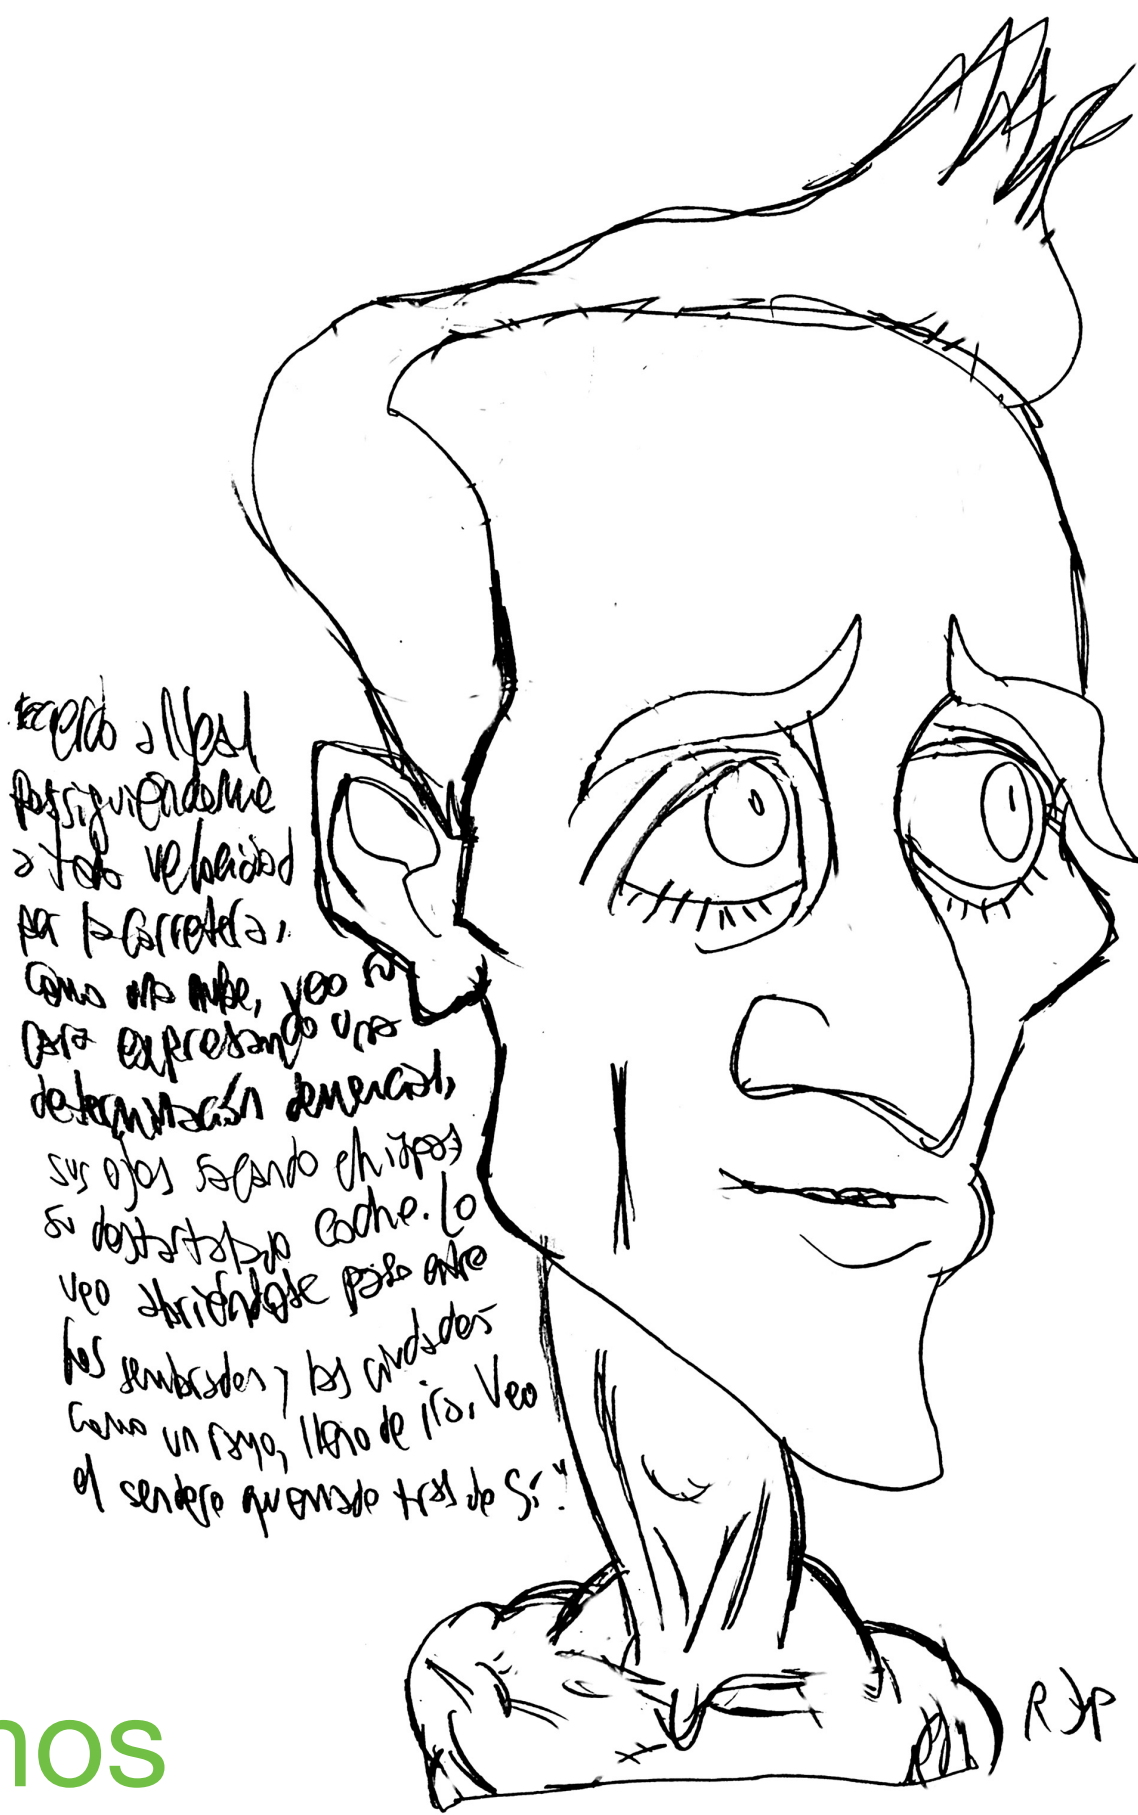 recuerdo a Neal
persiguiéndome
a toda velocidad
por la carretera,
como una nube, veo su
cara expresando una
determinación demencial,
sus ojos sacando chispas
su destartalado coche. Lo
veo abriéndose paso entre
los sembrados y las ciudades
como un rayo, lleno de ira. Veo
el sendero quemado tras de sí."
RJP
nos